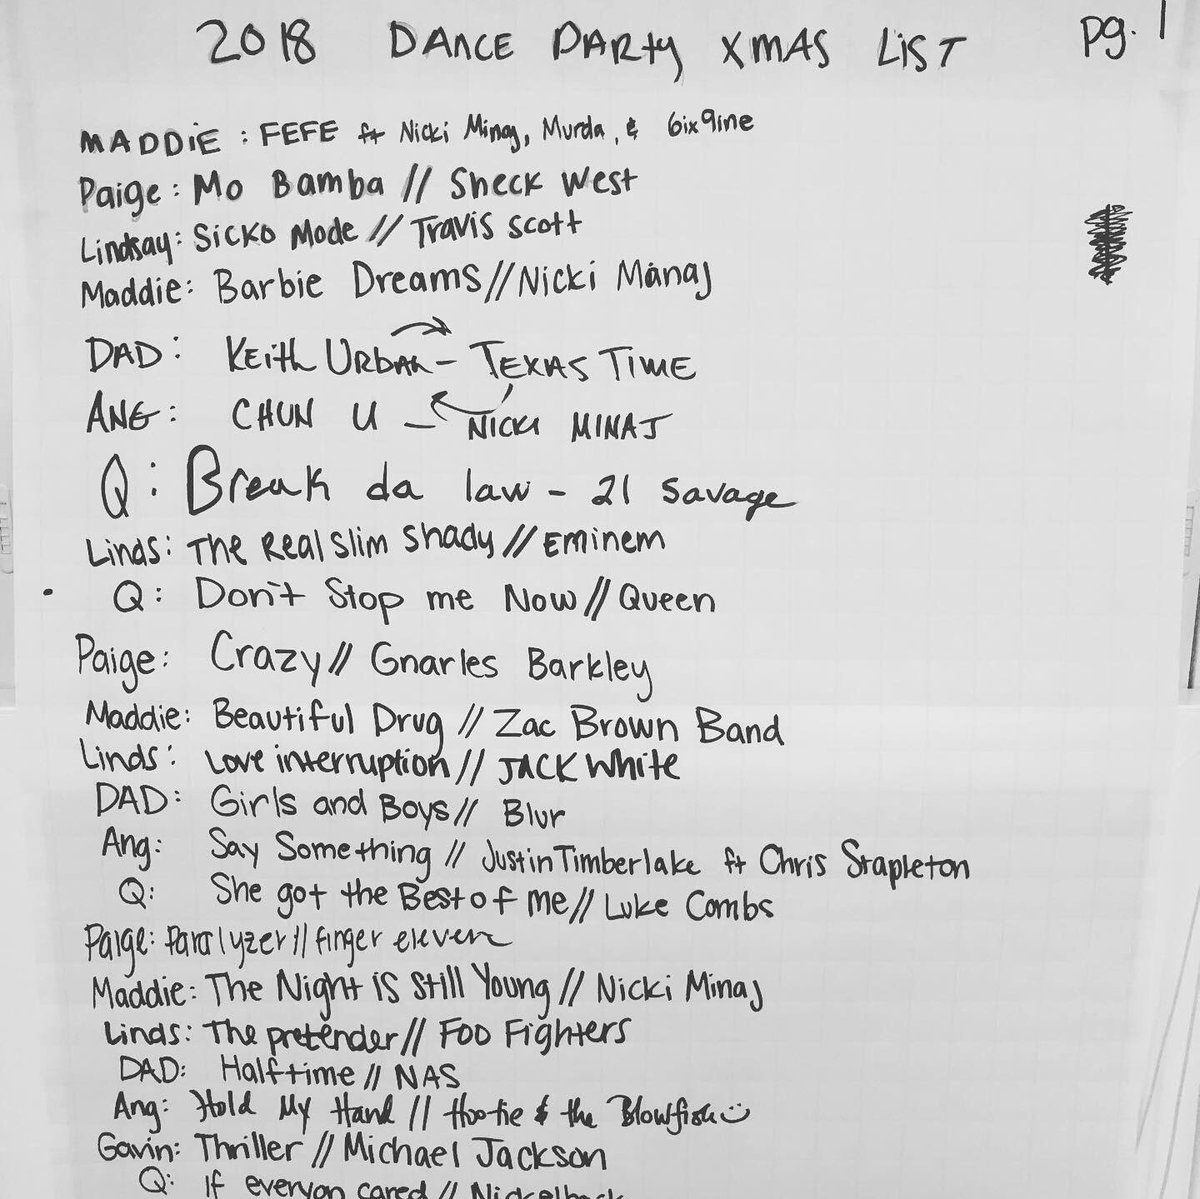 2018 DANCE PARTY XMAS LIST pg. 1
MADDiE: FEFE ft Nicki Minaj, Murda, & 6ix9ine
Paige: Mo Bamba // Sheck West
Lindsay: Sicko Mode // Travis Scott
Maddie: Barbie Dreams // Nicki Manaj
DAD: KEITH URBAN - TEXAS TIME
ANG: CHUN U - NICKI MINAJ
Q: Break da law - 21 Savage
Linds: The Real Slim Shady // Eminem
Q: Don't Stop me Now // Queen
Paige: Crazy // Gnarles Barkley
Maddie: Beautiful Drug // Zac Brown Band
Linds: Love interruption // JACK White
DAD: Girls and Boys // Blur
Ang: Say Something // Justin Timberlake ft Chris Stapleton
Q: She got the Best of me // Luke Combs
Paige: Paralyzer // finger eleven
Maddie: The Night is Still Young // Nicki Minaj
Linds: The pretender // Foo Fighters
DAD: Halftime // NAS
Ang: Hold My Hand // Hootie & the Blowfish
Gavin: Thriller // Michael Jackson
Q: If everyon cared // Nickelback